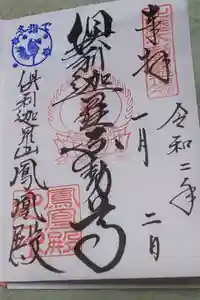 奉拝
令和二年
一月
二日
倶利迦羅不動尊
冬詣で
倶利迦羅山鳳凰殿
鳳凰殿